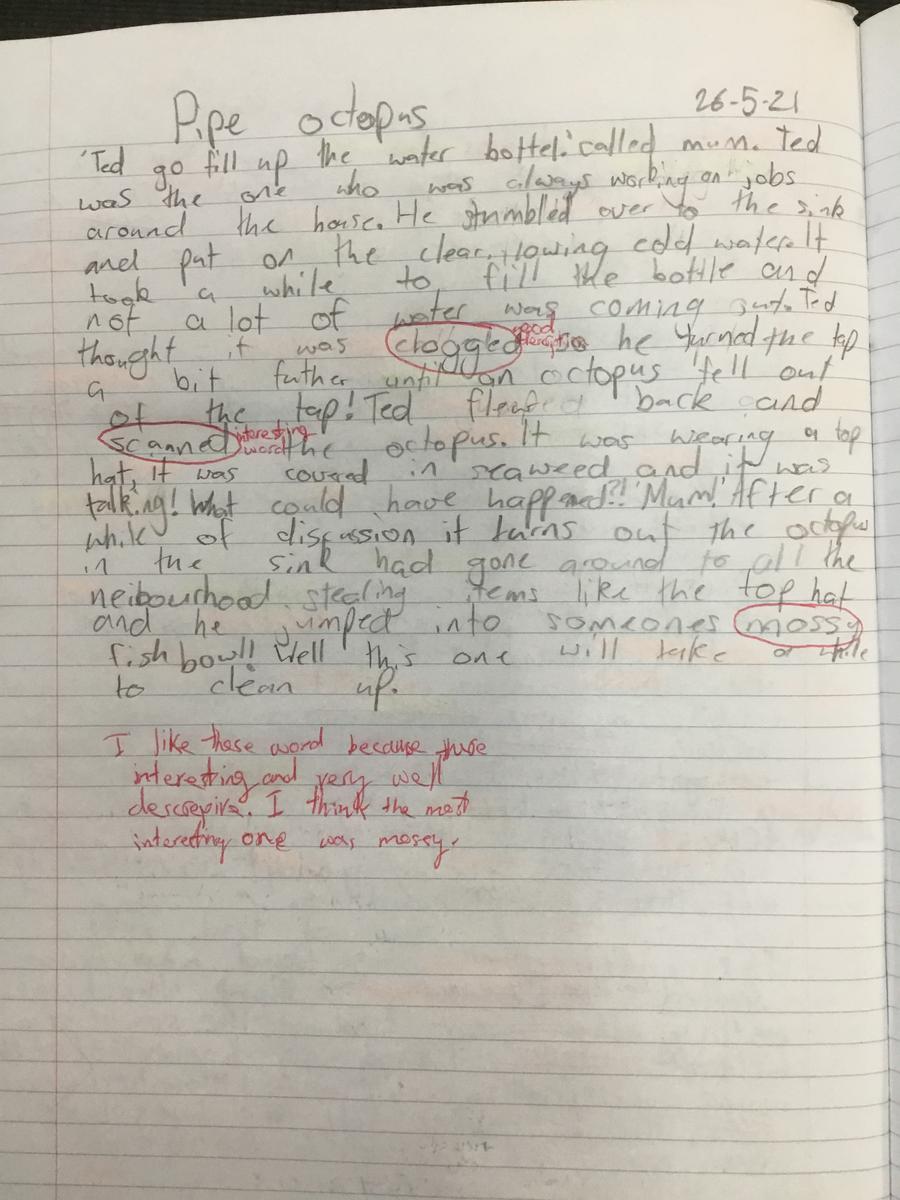 Pipe octopus 26-5-21
'Ted go fill up the water bottel.' called mum. Ted
was the one who was always working on jobs
around the house. He stumbled over to the sink
and put on the clear, flowing cold water. It
took a while to fill the bottle and
not a lot of water was coming out. Ted
thought it was clogged good so he turned the tap
a bit futher until an octopus fell out
of the tap! Ted back and
scanned interesting word the octopus. It was wearing a top
hat, it was coverd in seaweed and it was
talking! What could have happened?! 'Mum!' After a
while of discussion it turns out the octopus
in the sink had gone around to all the
neibourhood stealing items like the top hat
and he jumped into someones mossy
fish bowl! Well this one will take a while
to clean up.
I like these word because there
interesting and very well
descrepive. I think the most
interesting one was mossy.